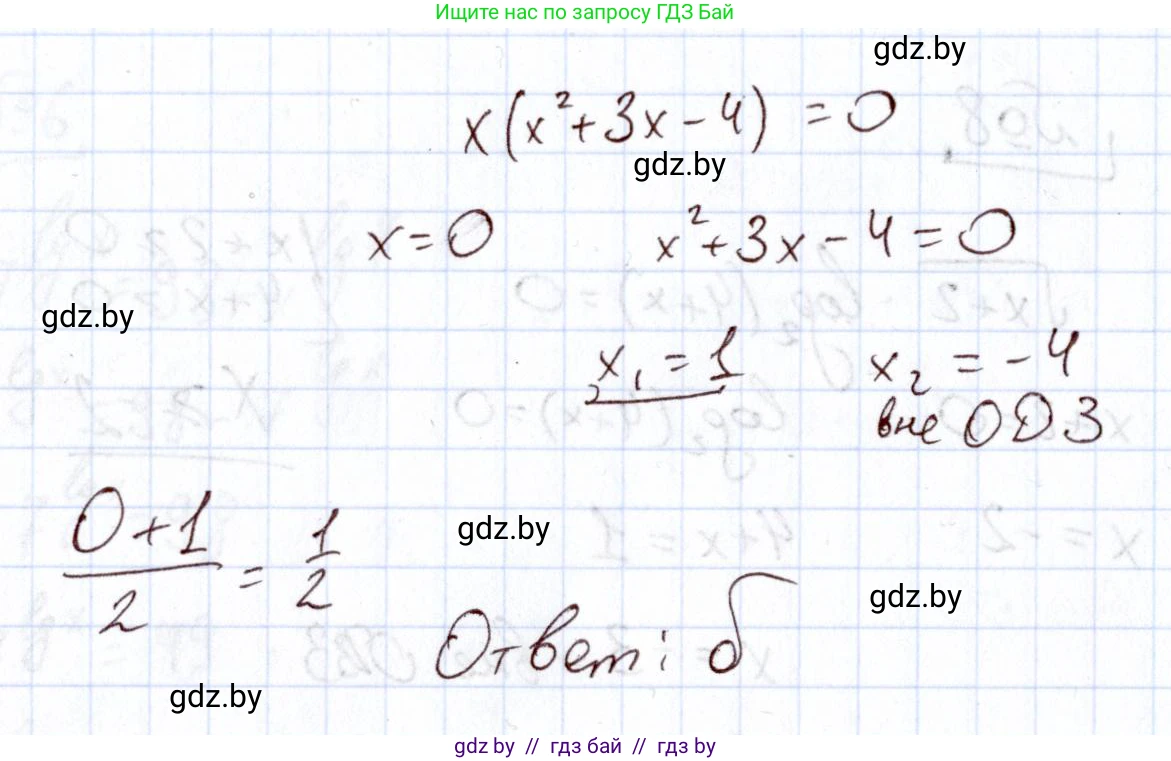 Ищите нас по запросу ГДЗ Бай
gdz.by
x(x²+3x-4) = 0
gdz.by
x=0 x²+3x-4=0
gdz.by
x₁=1 x₂ = -4
вне ОДЗ
(0+1)/2 = 1/2
gdz.by
gdz.by
Ответ: б
gdz.by
gdz by // гдз бай // гдз by